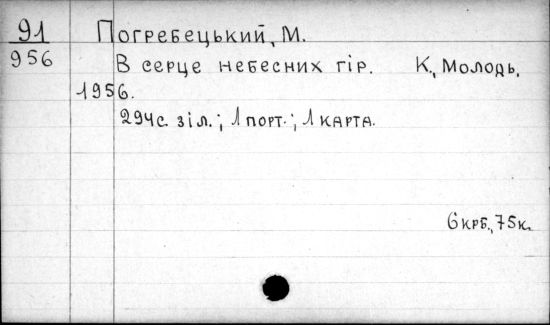 91
956
Погребецький, М.
В серце небесних гір. К., Молодь,
1956.
294 с. з іл.; 1 порт.; 1 карта.
6 крб., 75 к.